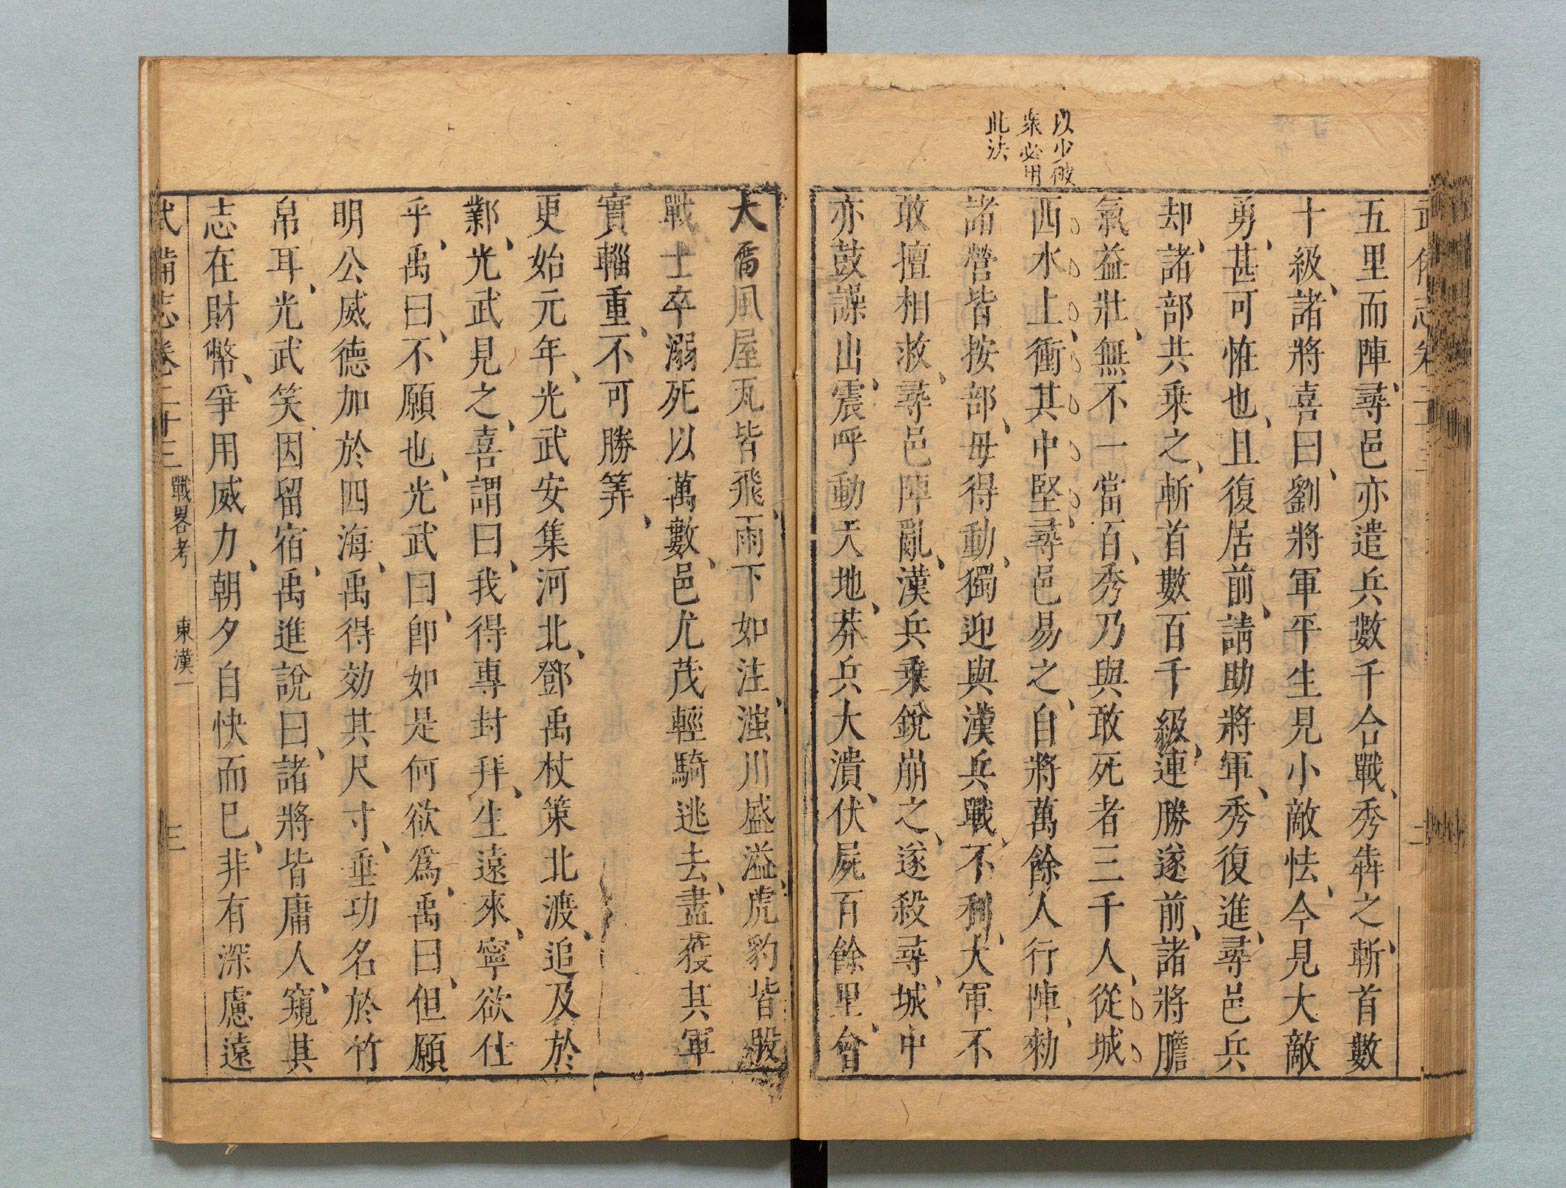 以少破
衆必用
此法
五里而陣、尋邑亦遣兵數千合戰、秀犇之、斬首數
十級、諸將喜曰、劉將軍平生見小敵怯、今見大敵
勇、甚可怪也、且復居前、請助將軍、秀復進、尋邑兵
却、諸部共乘之、斬首數百千級、連勝遂前、諸將膽
氣益壯、無不一當百、秀乃與敢死者三千人、從城
西水上、衝其中堅、尋邑易之、自將萬餘人行陣、勑
諸營皆按部、毋得動、獨迎與漢兵戰、不利、大軍不
敢擅相救、尋邑陣亂、漢兵乘銳崩之、遂殺尋、城中
亦鼓譟出、震呼動天地、莽兵大潰、伏屍百餘里、會
大雷風屋瓦皆飛、雨下如注、滍川盛溢、虎豹皆股
戰、士卒溺死以萬數、邑尤茂輕騎逃去、盡獲其軍
實輜重、不可勝筭、
更始元年、光武安集河北、鄧禹杖策北渡、追及於
鄴、光武見之、喜謂曰、我得專封拜、生遠來、寧欲仕
乎、禹曰、不願也、光武曰、卽如是何欲爲、禹曰、但願
明公威德加於四海、禹得効其尺寸、垂功名於竹
帛耳、光武笑、因留宿、禹進說曰、諸將皆庸人、窺其
志在財幣、爭用威力、朝夕自快而已、非有深慮遠
武備志卷二十三 戰畧考 東漢一 三